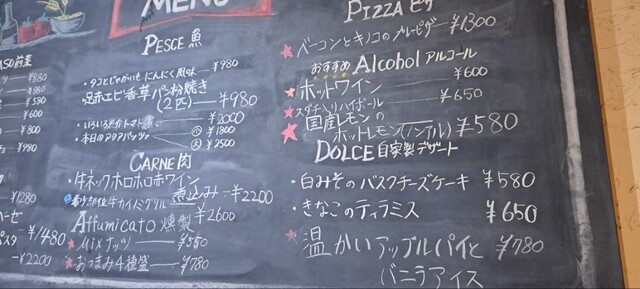 MENU
前菜
¥580
¥600
¥800
¥980
¥1280
¥1480
¥2200
PESCE 魚
・タコとじゃがいも にんにく風味 ¥980
・足赤エビ香草パン粉焼き
(2匹) ¥980
¥2000
・本日のアクアパッツァ ¥1800
¥2500
CARNE 肉
・牛ネックホロホロ赤ワイン
煮込み ¥2200
¥2600
Affumicato 燻製
★ Mixナッツ ¥550
★ おつまみ4種盛 ¥780
PIZZA ピザ
★ ベーコンとキノコの ¥1300
おすすめ Alcohol アルコール
★ ホットワイン ¥600
★ スダチ入りハイボール ¥650
★ 国産レモンの
ホットレモン(ノンアル) ¥580
DOLCE 自家製デザート
・白みそのバスクチーズケーキ ¥580
・きなこのティラミス ¥650
★ 温かいアップルパイと ¥780
バニラアイス